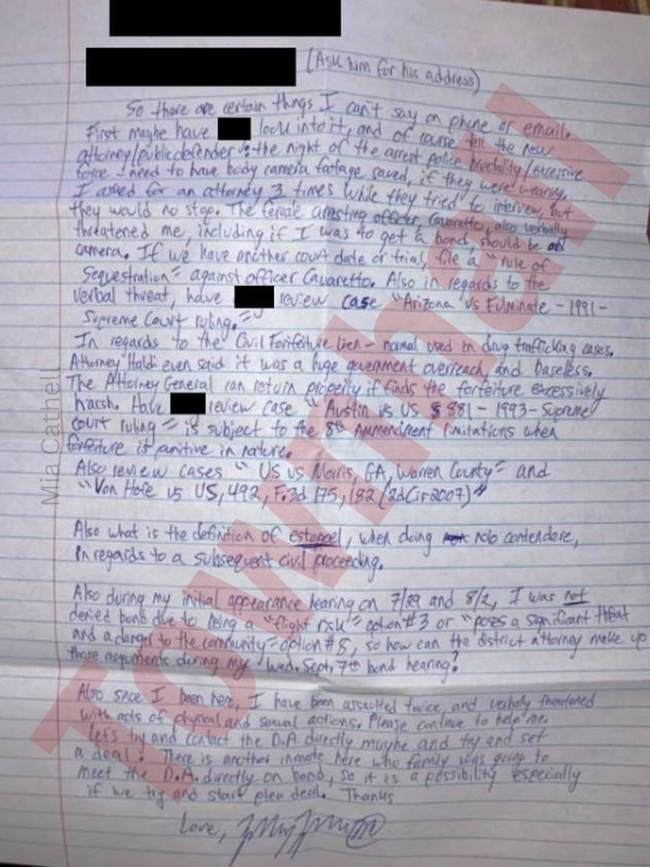 (Ask him for his address)
So there are certain things I can't say on phone or email.
First maybe have look into it, and of course tell the new
attorney/public defender: the night of the arrest police brutality/excessive
force - need to have body camera footage saved, if they were wearing.
I asked for an attorney 3 times while they tried to interview, but
they would no stop. The female arresting officer, Cavaretto, also verbally
threatened me, including if I was to get a bond, should be on
camera. If we have another court date or trial, file a "rule of
Sequestration" against officer Cavaretto. Also in regards to the
verbal threat, have review case "Arizona vs Fulminate - 1991 -
Supreme Court ruling."
In regards to the Civil Forifeiture Lien - normal used in drug trafficking cases.
Attorney Haldi even said it was a huge government overreach and baseless.
The Attorney General can return property if finds the forfeiture excessively
harsh. Have review case "Austin vs US § 881 - 1993 - Supreme
court ruling" is subject to the 8th Ammendment limitations when
forfeiture is punitive in nature.
Also review cases "US vs Morris, GA, Warren County" and
"Von Hofe vs US, 492, F.3d 175, 182 (2d Cir 2007)"
Also what is the definition of estoppel, when doing nolo contendere,
in regards to a subsequent civil proceeding.
Also during my initial appearance hearing on 7/29 and 8/2, I was not
denied bond due to being a "flight risk" option #3 or "poses a significant threat
and a danger to the community" option #5, so how can the district attorney make up
those arguments during my Wed. Sept. 7th bond hearing?
Also since I been here, I have been assaulted twice, and verbally threatened
with acts of physical and sexual actions. Please continue to help me.
Let's try and contact the D.A. directly maybe and try and set
a deal? There is another inmate here who family was going to
meet the D.A. directly on bond, so it is a possibility especially
if we try and start plea deal. Thanks
Love,
Mia Cathell
Townhall